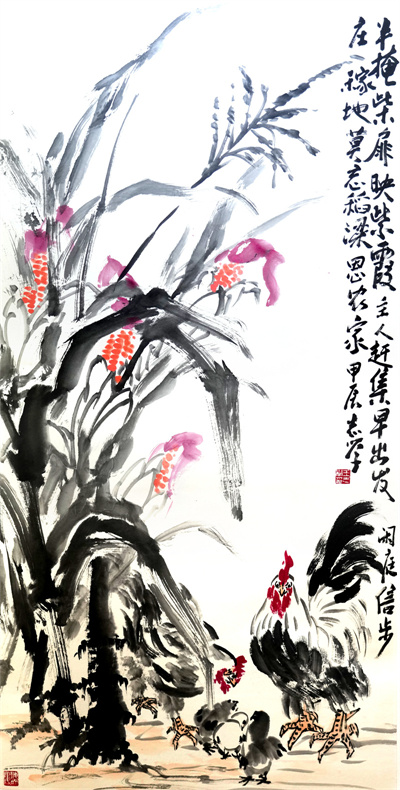 半掩柴扉映紫霞主人赶集早出发
庄稼地莫忘稻粱思农家甲辰志学
闲庭信步